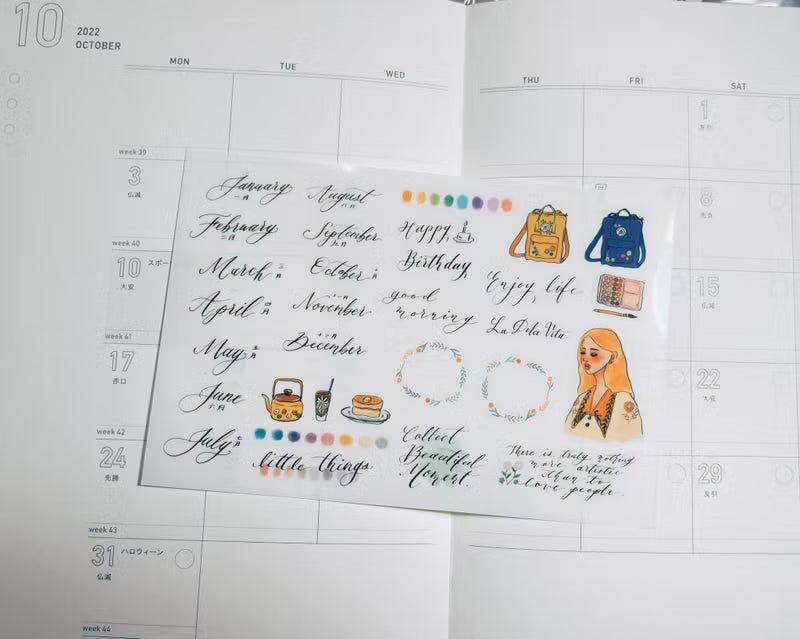 10
2022
OCTOBER
MON
TUE
WED
THU
FRI
SAT
1
友引
week 39
3
仏滅
8
先負
week 40
10
大安
スポー
15
仏滅
week 41
17
赤口
22
大安
week 42
24
先勝
29
友引
week 43
31
ハロウィーン
仏滅
week 44
January
一月
February
二月
March 三月
April 四月
May 五月
June
六月
July 七月
August
八月
September
九月
October 十月
十一月
November
十二月
December
Happy
Birthday
good
morning
Enjoy life
La Dolce Vita
little things
Collect
Beautiful
Moment.
There is truly nothing
more artistic
than to
love people.